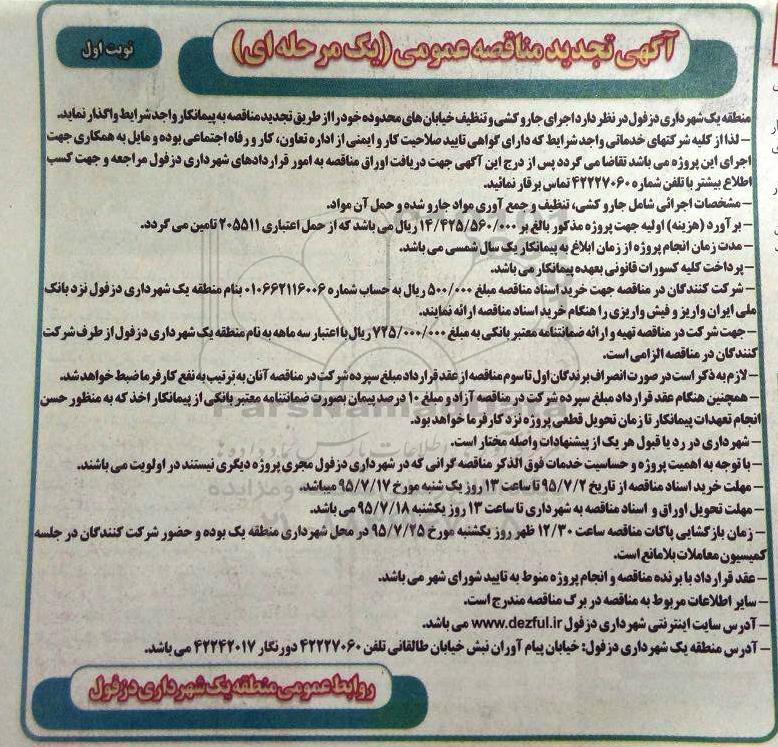 آگهی تجدید مناقصه عمومی (یک مرحله ای)
نوبت اول
منطقه یک شهرداری دزفول در نظر دارد اجرای جاروکشی و تنظیف خیابان های محدوده خود را از طریق تجدید مناقصه به پیمانکار واجد شرایط واگذار نماید.
– لذا از کلیه شرکتهای خدماتی واجد شرایط که دارای گواهی تایید صلاحیت کار و ایمنی از اداره تعاون، کار و رفاه اجتماعی بوده و مایل به همکاری جهت
اجرای این پروژه می باشد تقاضا می گردد پس از درج این آگهی جهت دریافت اوراق مناقصه به امور قراردادهای شهرداری دزفول مراجعه و جهت کسب
اطلاع بیشتر با تلفن شماره ۴۲۲۲۷۰۶۰ تماس برقار نمائید.
– مشخصات اجرائی شامل جاروکشی، تنظیف و جمع آوری مواد جارو شده و حمل آن مواد.
– برآورد (هزینه) اولیه جهت پروژه مذکور بالغ بر ۱۴/۴۲۵/۵۶۰/۰۰۰ ریال می باشد که از حمل اعتباری ۲۰۵۵۱۱ تامین می گردد.
– مدت زمان انجام پروژه از زمان ابلاغ به پیمانکار یک سال شمسی می باشد.
– پرداخت کلیه کسورات قانونی بعهده پیمانکار می باشد.
– شرکت کنندگان در مناقصه جهت خرید اسناد مناقصه مبلغ ۵۰۰/۰۰۰ ریال به حساب شماره ۰۱۰۶۶۲۱۱۶۰۰۶ بنام منطقه یک شهرداری دزفول نزد بانک
ملی ایران واریز و فیش واریزی را هنگام خرید اسناد مناقصه ارائه نمایند.
– جهت شرکت در مناقصه تهیه و ارائه ضمانتنامه معتبر بانکی به مبلغ ۷۲۵/۰۰۰/۰۰۰ ریال با اعتبار سه ماهه به نام منطقه یک شهرداری دزفول از طرف شرکت
کنندگان در مناقصه الزامی است.
– لازم به ذکر است در صورت انصراف برندگان اول تا سوم مناقصه از عقد قرارداد مبلغ سپرده شرکت در مناقصه آنان به ترتیب به نفع کارفرما ضبط خواهد شد.
– همچنین هنگام عقد قرارداد مبلغ سپرده شرکت در مناقصه آزاد و مبلغ ۱۰ درصد پیمان بصورت ضمانتنامه معتبر بانکی از پیمانکار اخذ که به منظور حسن
انجام تعهدات پیمانکار تا زمان تحویل قطعی پروژه نزد کارفرما خواهد بود.
– شهرداری در رد یا قبول هر یک از پیشنهادات واصله مختار است.
– با توجه به اهمیت پروژه و حساسیت خدمات فوق الذکر مناقصه گرانی که در شهرداری دزفول مجری پروژه دیگری نیستند در اولویت می باشند.
– مهلت خرید اسناد مناقصه از تاریخ ۹۵/۷/۲ تا ساعت ۱۳ روز یک شنبه مورخ ۹۵/۷/۱۷ میباشد.
– مهلت تحویل اوراق و اسناد مناقصه به شهرداری تا ساعت ۱۳ روز یکشنبه ۹۵/۷/۱۸ می باشد.
– زمان بازگشایی پاکات مناقصه ساعت ۱۲/۳۰ ظهر روز یکشنبه مورخ ۹۵/۷/۲۵ در محل شهرداری منطقه یک بوده و حضور شرکت کنندگان در جلسه
کمیسیون معاملات بلامانع است.
– عقد قرارداد با برنده مناقصه و انجام پروژه منوط به تایید شورای شهر می باشد.
– سایر اطلاعات مربوط به مناقصه در برگ مناقصه مندرج است.
– آدرس سایت اینترنتی شهرداری دزفول www.dezful.ir می باشد.
– آدرس منطقه یک شهرداری دزفول: خیابان پیام آوران نبش خیابان طالقانی تلفن ۴۲۲۲۷۰۶۰ دورنگار ۴۲۲۴۲۰۱۷ می باشد.
روابط عمومی منطقه یک شهرداری دزفول